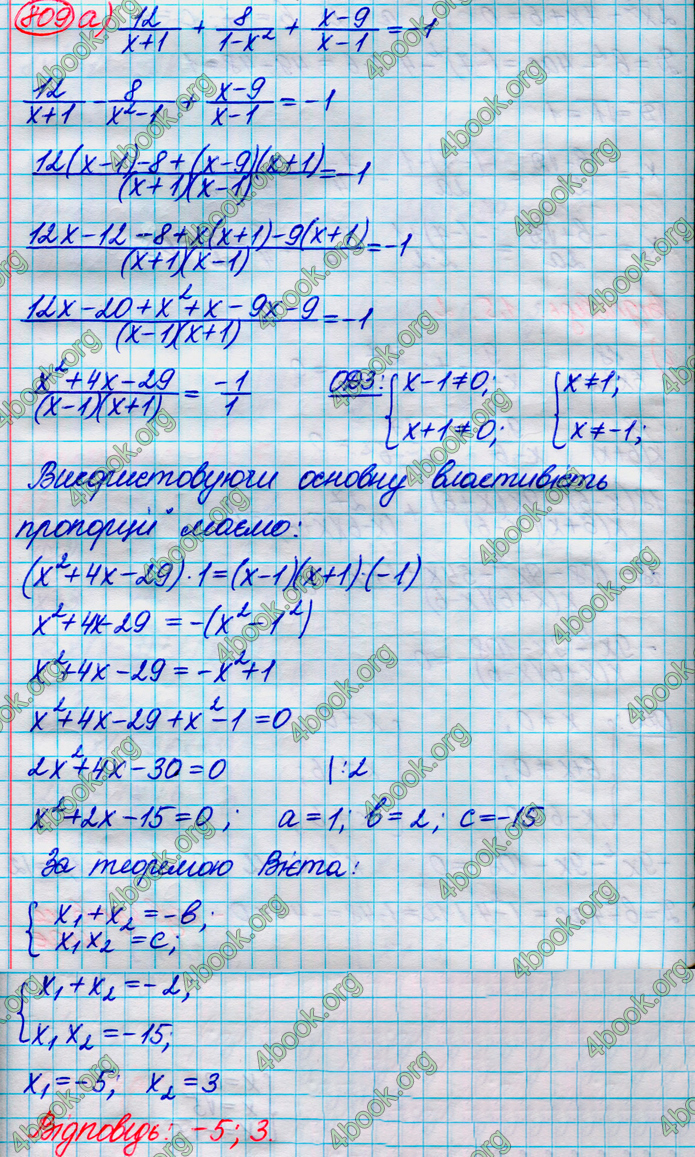 809 а) 12/(x+1) + 8/(1-x²) + (x-9)/(x-1) = -1
12/(x+1) - 8/(x²-1) + (x-9)/(x-1) = -1
(12(x-1)-8+(x-9)(x+1))/((x+1)(x-1)) = -1
(12x-12-8+x(x+1)-9(x+1))/((x+1)(x-1)) = -1
(12x-20+x²+x-9x-9)/((x-1)(x+1)) = -1
(x²+4x-29)/((x-1)(x+1)) = -1/1 ОДЗ: { x-1≠0; x+1≠0; { x≠1; x≠-1;
Використовуючи основну властивість
пропорції маємо:
(x²+4x-29)·1=(x-1)(x+1)·(-1)
x²+4x-29 = -(x²-1²)
x²+4x-29 = -x²+1
x²+4x-29+x²-1=0
2x²+4x-30=0 |:2
x²+2x-15=0; a=1; в=2; c=-15
За теоремою Вієта:
{ x₁+x₂=-в;
x₁x₂=c;
{ x₁+x₂=-2;
x₁x₂=-15;
x₁=-5; x₂=3
Відповідь: -5; 3.
4book.org